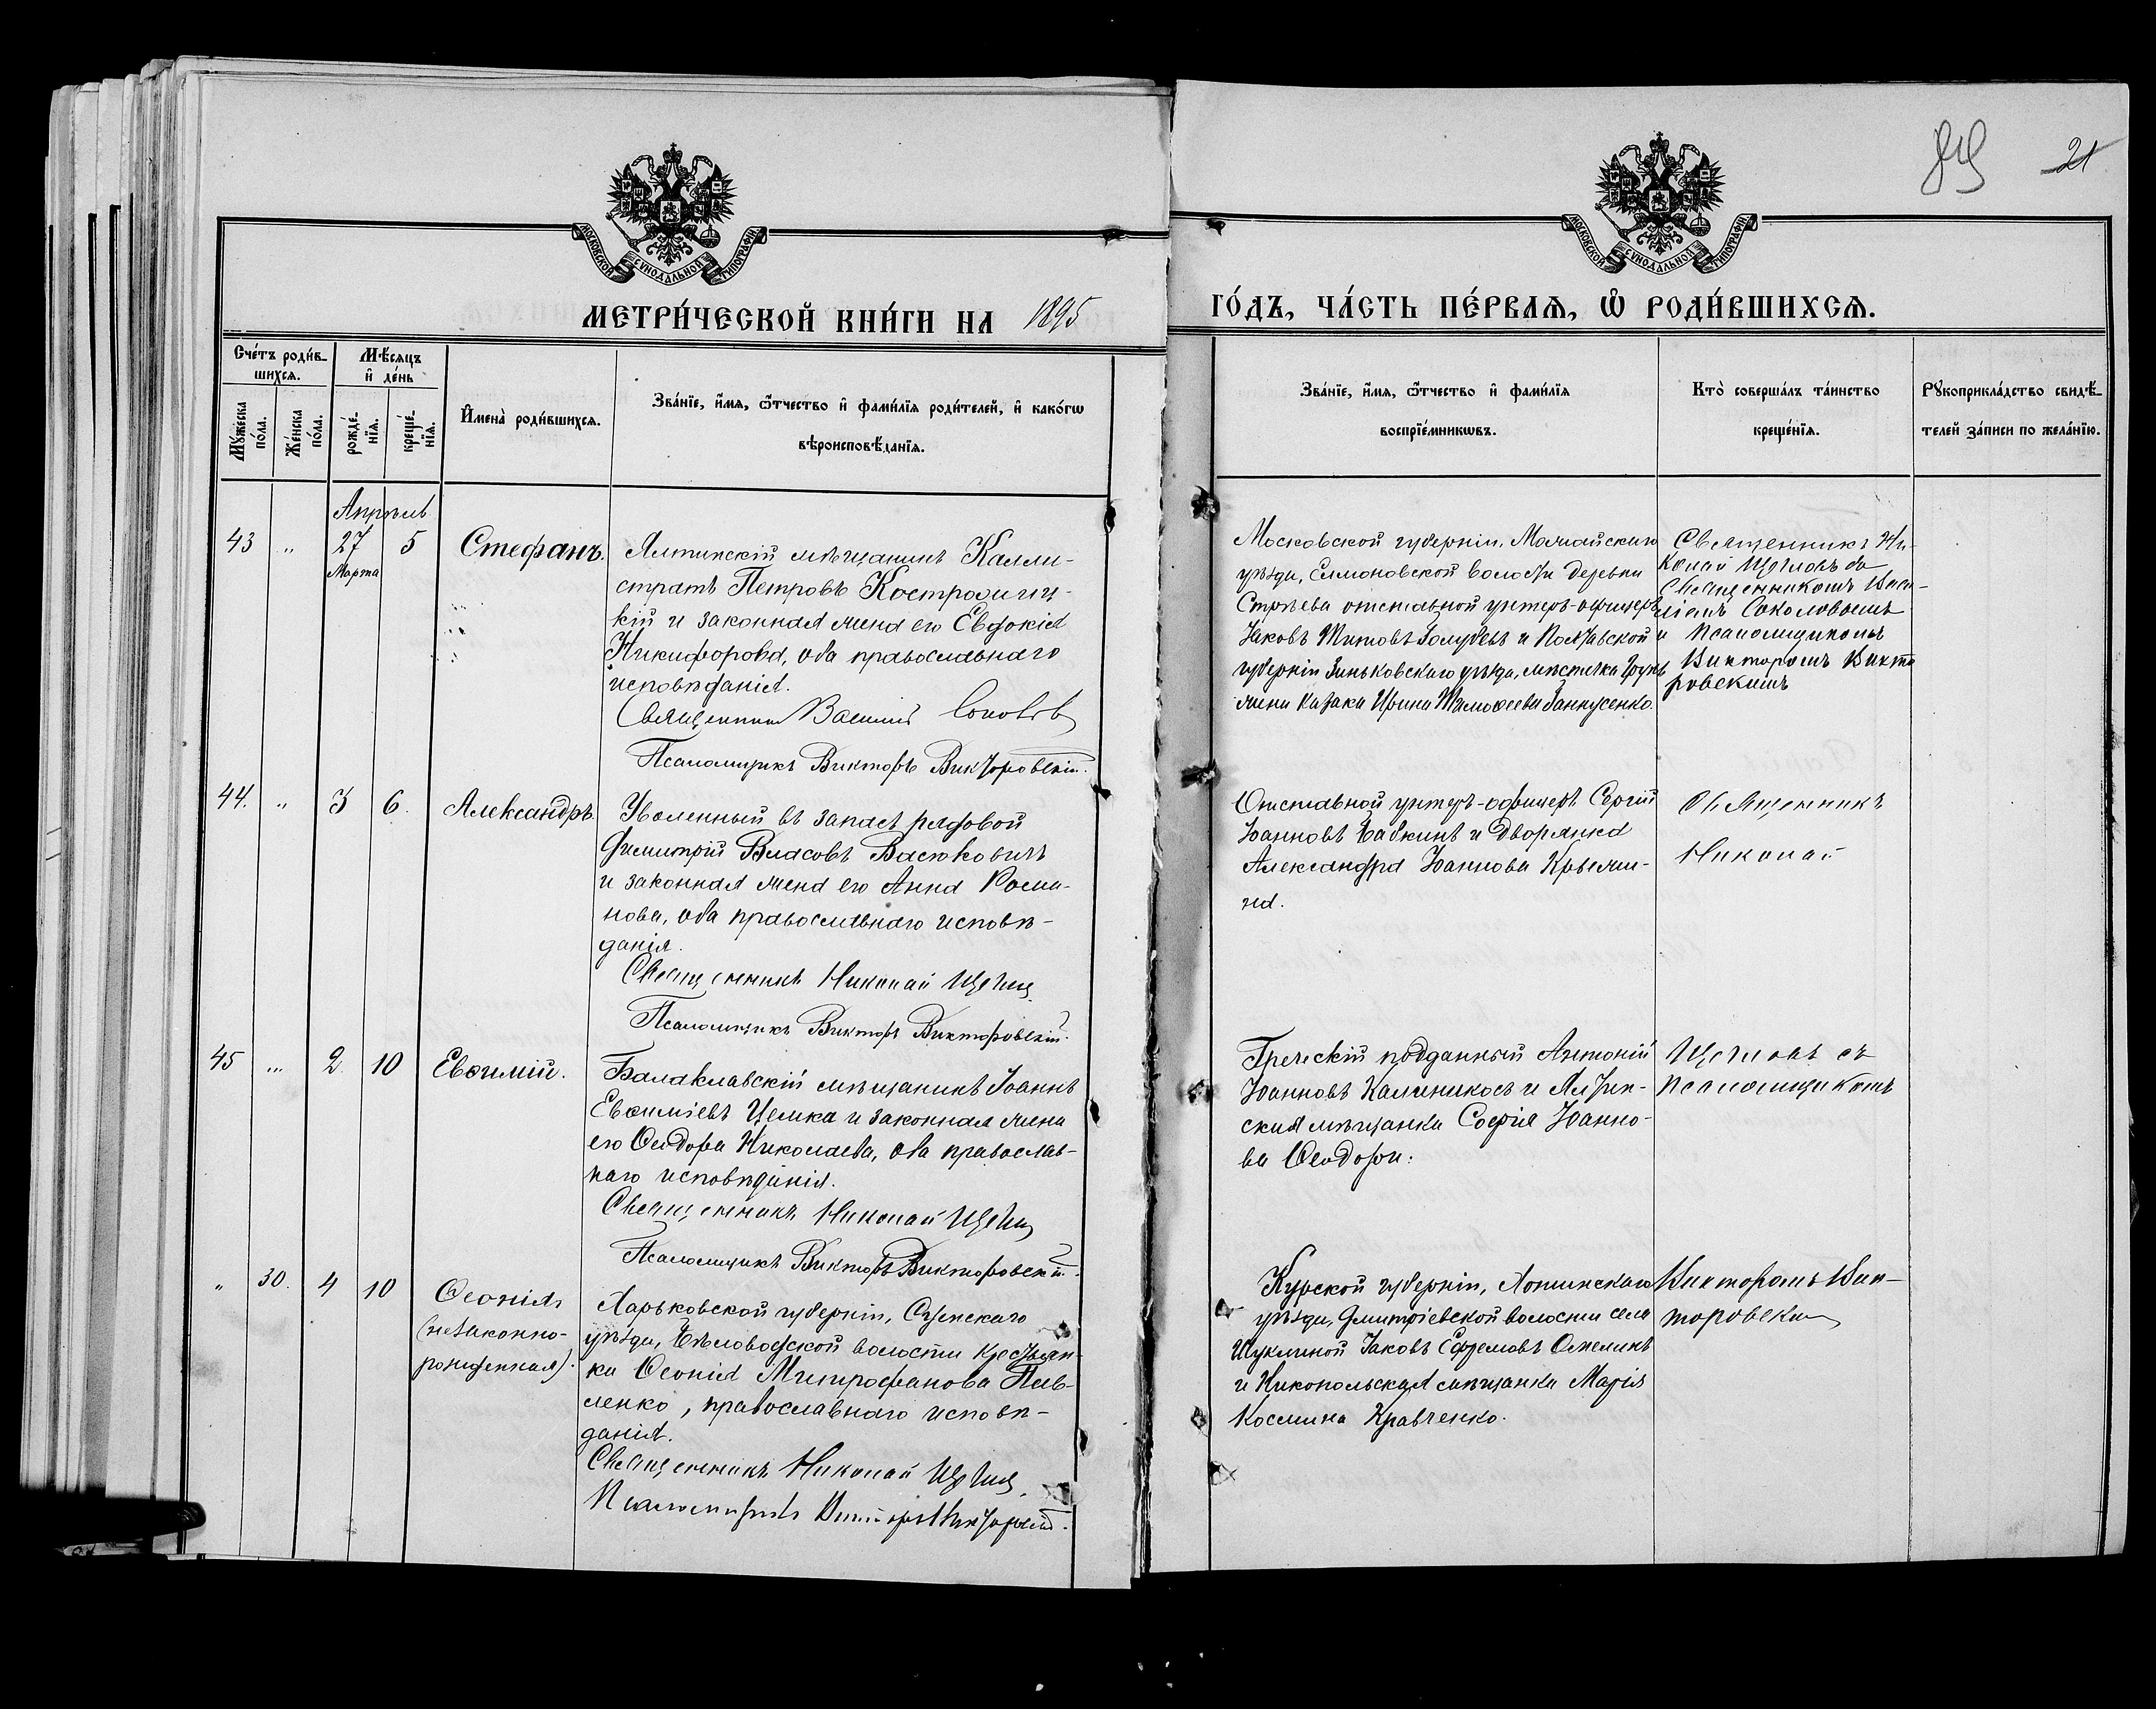 89 21
МОСКОВСКОЙ СѴНОДАЛЬНОЙ ТИПОГРАФІИ
МОСКОВСКОЙ СѴНОДАЛЬНОЙ ТИПОГРАФІИ
МЕТРИ́ЧЕСКОЙ КНИ́ГИ НА 1895
ГО́ДЪ, ЧА́СТЬ ПЕ́РВАѦ, Ѡ҆ РОДИ́ВШИХСѦ.
Сче́тъ роди́в-
шихсѧ.
Мѣ́сѧцъ
и҆ де́нь
Мꙋ́жеска
по́ла.
Же́нска
по́ла.
рожде́-
нїѧ.
креще́-
нїѧ.
И҆мена̀ роди́вшихсѧ.
Зва́нїе, и҆́мѧ, ѻ҆́тчество и҆ фами́лїѧ роди́телей, и҆ како́гѡ
вѣроисповѣ́данїѧ.
Зва́нїе, и҆́мѧ, ѻ҆́тчество и҆ фами́лїѧ
воспрїе́мникѡвъ.
Кто̀ соверша́лъ та́инство
креще́нїѧ.
Рꙋкоприкла́дство свидѣ́-
телей за́писи по жела́нїю.
Апрѣль
43 " 27 5 Стефанъ.
Марта
Ялтинскій мѣщанинъ Калли-
стратъ Петровъ Костромиц-
кій и законная жена его Евдокія
Никифорова, оба православнаго
исповѣданія.
Священникъ Василій Соколовъ
Псаломщикъ Викторъ Викторовскій.
Московской губерніи, Можайскаго
уѣзда, Елмановской волости деревни
Стрѣева отставной унтеръ-офицеръ
Іаковъ Титовъ Голубевъ и Полтавской
губерніи Зиньковскаго уѣзда, мѣстечка Грунь
жена казака Ирина Тимоѳеева Ганнусенко
Священникъ Ни-
колай Щегловъ съ
Священникомъ Васи-
ліемъ Соколовымъ
и Псаломщикомъ
Викторомъ Викто
ровскимъ
44. " 3 6. Александръ.
Уволенный въ запасъ рядовой
Димитрій Власовъ Васюковичъ
и законная жена его Анна Рома-
нова, оба православнаго исповѣ-
данія.
Священникъ Николай Щегловъ
Псаломщикъ Викторъ Викторовскій.
Отставной унтеръ-офицеръ Сергій
Іоанновъ Бабкинъ и дворянка
Александра Іоаннова
на.
Священникъ
Николай
45 " 2 10 Евѳимій.
Балаклавскій мѣщанинъ Іоаннъ
Евѳиміевъ Целика и законная жена
его Ѳеодора Николаева, оба православ-
наго исповѣданія.
Священникъ Николай Щегловъ
Псаломщикъ Викторъ Викторовскій.
Греческій подданный Антоній
Іоанновъ Калиникосъ и Ялтин-
ская мѣщанка Софія Іоанно-
ва Ѳеодори.
Щегловъ съ
Псаломщикомъ
" 30. 4 10 Ѳеонія
(незаконно-
рожденная).
Харьковской губерніи, Сумскаго
уѣзда, Бѣловодской волости крестьян-
ка Ѳеонія Митрофанова Пав-
ленко, православнаго исповѣ-
данія.
Священникъ Николай Щегловъ
Псаломщикъ Викторъ Викторовскій.
Курской губерніи,
уѣзда, Дмитріевской волости села
Шуклиной Іаковъ Ефремовъ Омелинъ
и Никопольская мѣщанка Марія
Космина Кравченко.
Викторомъ Вик-
торовскимъ